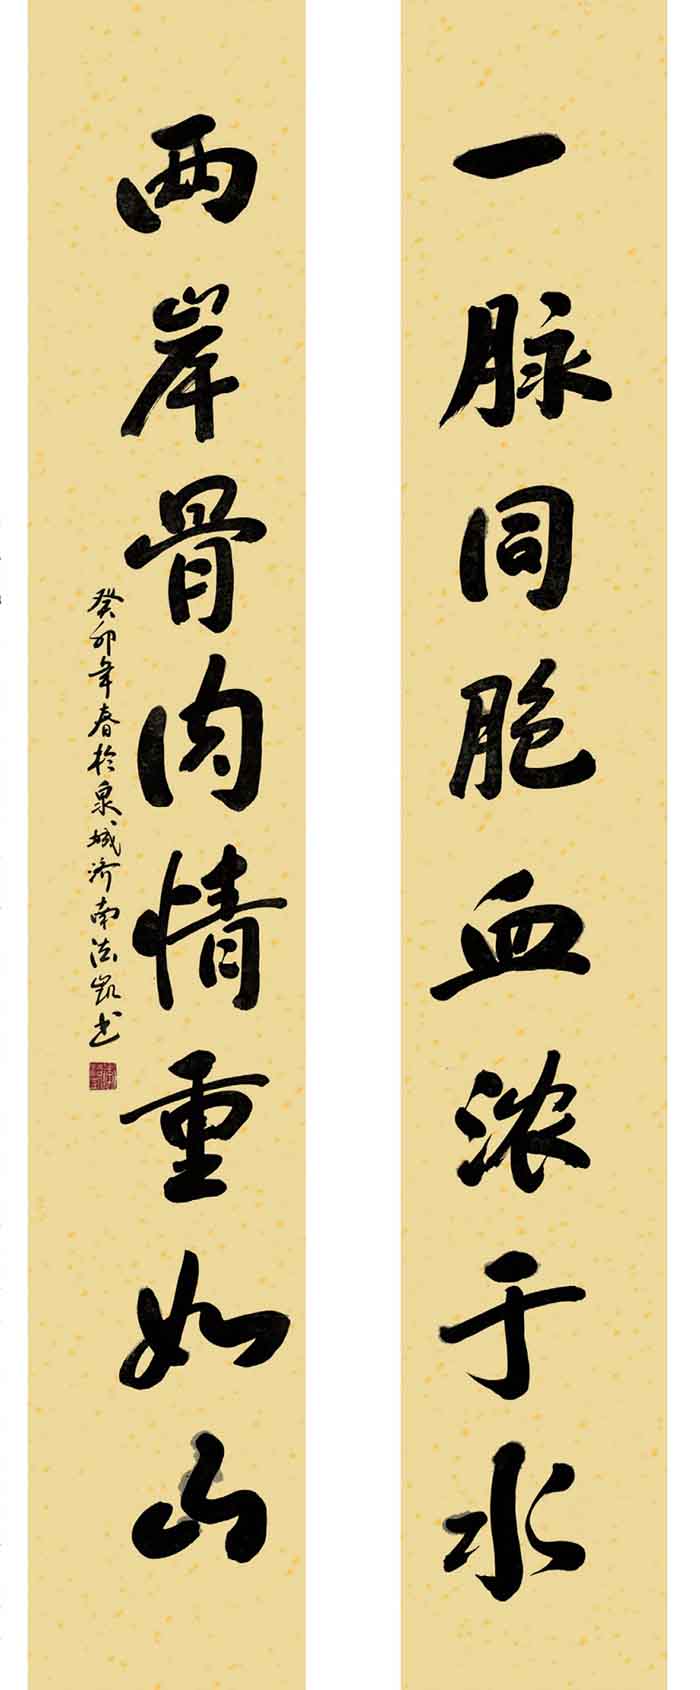 一脉同胞血浓于水
两岸骨肉情重如山
癸卯年春於泉城济南法凯书